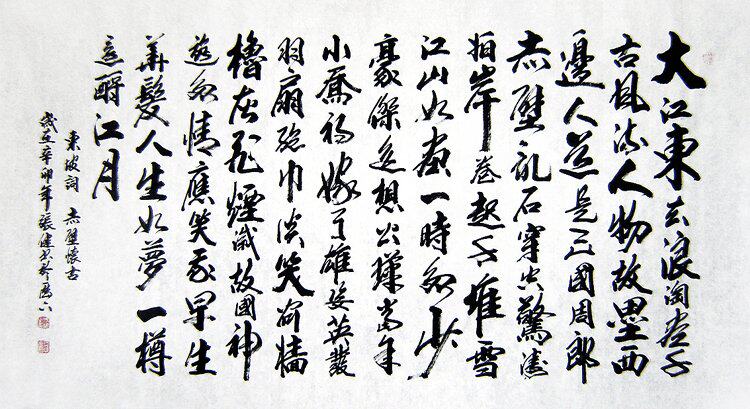 大江東去浪淘盡千
古風流人物故壘西
邊人道是三國周郎
赤壁亂石穿空驚濤
拍岸卷起千堆雪
江山如畫一時多少
豪傑遙想公瑾當年
小喬初嫁了雄姿英發
羽扇綸巾談笑間檣
櫓灰飛煙滅故國神
遊多情應笑我早生
華髮人生如夢一樽
還酹江月
東坡詞 赤壁懷古
歲在辛卯年張健書於歷下